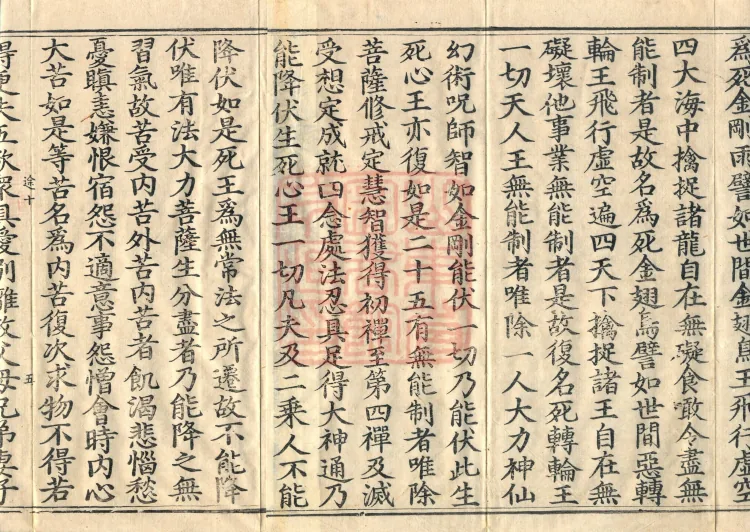 為死金剛雨譬如世間金翅鳥王飛行虛空
四大海中擒捉諸龍自在無礙食噉令盡無
能制者是故名為死金翅鳥譬如世間惡轉
輪王飛行虛空遍四天下擒捉諸王自在無
礙壞他事業無能制者是故復名死轉輪王
一切天人王無能制者唯除一人大力神仙
幻術呪師智如金剛能伏一切乃能伏此生
死心王亦復如是二十五有無能制者唯除
菩薩修戒定慧智獲得初禪至第四禪及滅
受想定成就四念處法忍具足得大神通乃
能降伏生死心王一切凡夫及二乘人不能
降伏如是死王為無常法之所遷故不能降
伏唯有法大力菩薩生分盡者乃能降之無
習氣故苦受內苦外苦內苦者飢渴悲惱愁
憂瞋恚嫌恨宿怨不適意事怨憎會時內心
大苦如是等苦名為內苦復次求物不得若
途十 五
得更失五欲眾具愛別離故父母兄弟妻子